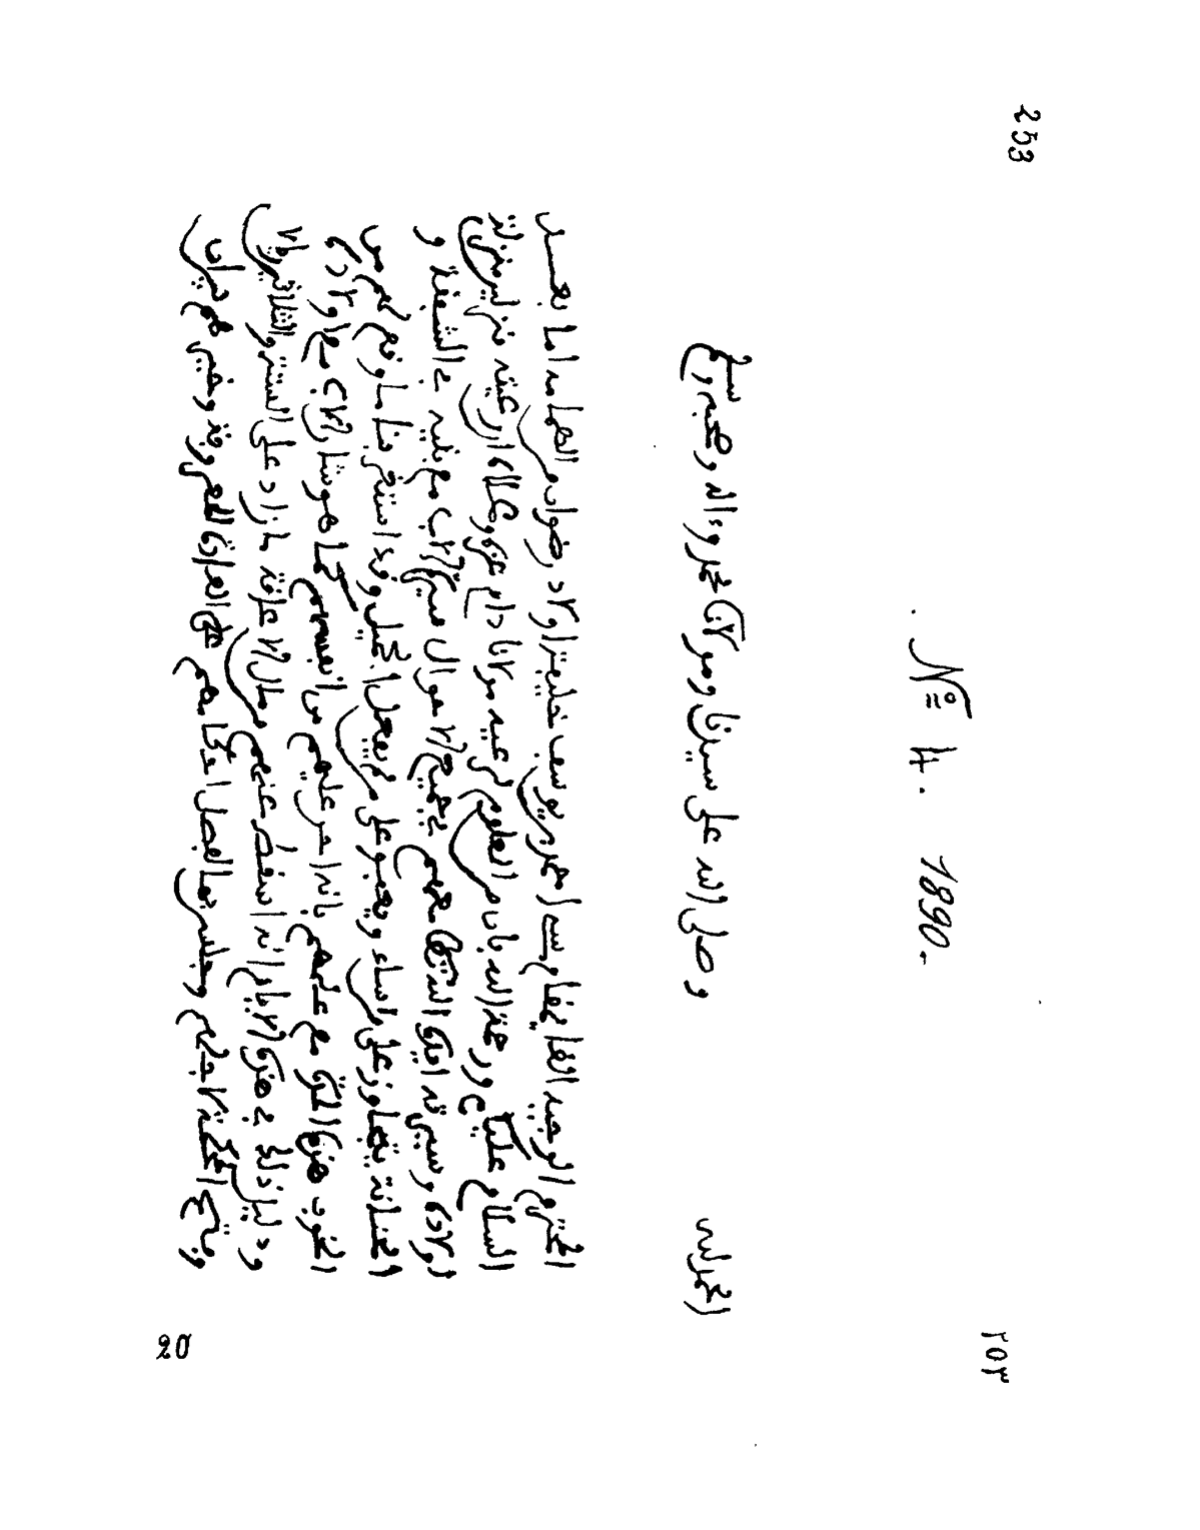 253
٢٥٣
№ 4. 1890.
الحمد لله وصلى الله على سيدنا ومولانا محمد وءاله وصحبه وسلم
المحترم الوجيه القا يمقام سي امحمد بن يوسف خليفة اولاد رضوان من الهمامه اما بعد
السلام عليكم ورحمة الله بان من المعلوم لرعيه مولانا دام عزه وعلاه ان رعيته منزلين منزلة
اولاده وسيرته امده الله معهم في جميع الاحوال سيرة الاب مع بنيه في الشفقة و
الحنانة يتجاوز على من اساء ويعفو على من يفعل الجميل وقد استغرب منا ما وقع لهم من
الخوف هذه المدة مع علمهم بانه احن عليهم من انفسهم كما هو شان الاب مع اولاده
ودليل ذلك في هذه الايام انه اسقط عنهم من مال الاعانة ما زاد على الستة والثلاثين ريالا
وفتح المحكمة لاجلهم وجلس بها لفصل احكامهم على العادة المعروفة وحين هم
20